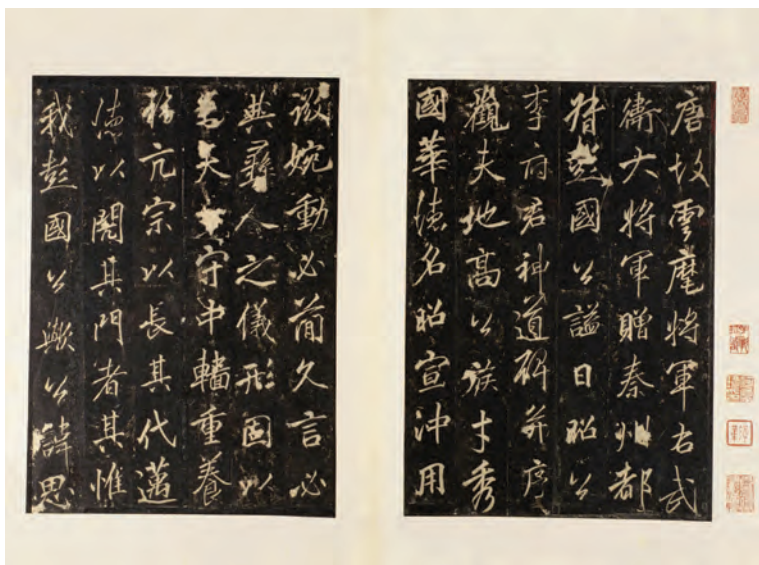 唐故雲麾將軍右武
衛大將軍贈秦州都
督彭國公謚曰昭公
李府君神道碑并序
觀夫地高公族才秀
國華德名昭宣沖用
微婉動必簡久言必
典彝人之儀形固以
為夫守中轖重養
福亢宗以長其代邁
德以闢其門者其惟
我彭國公歟公諱思